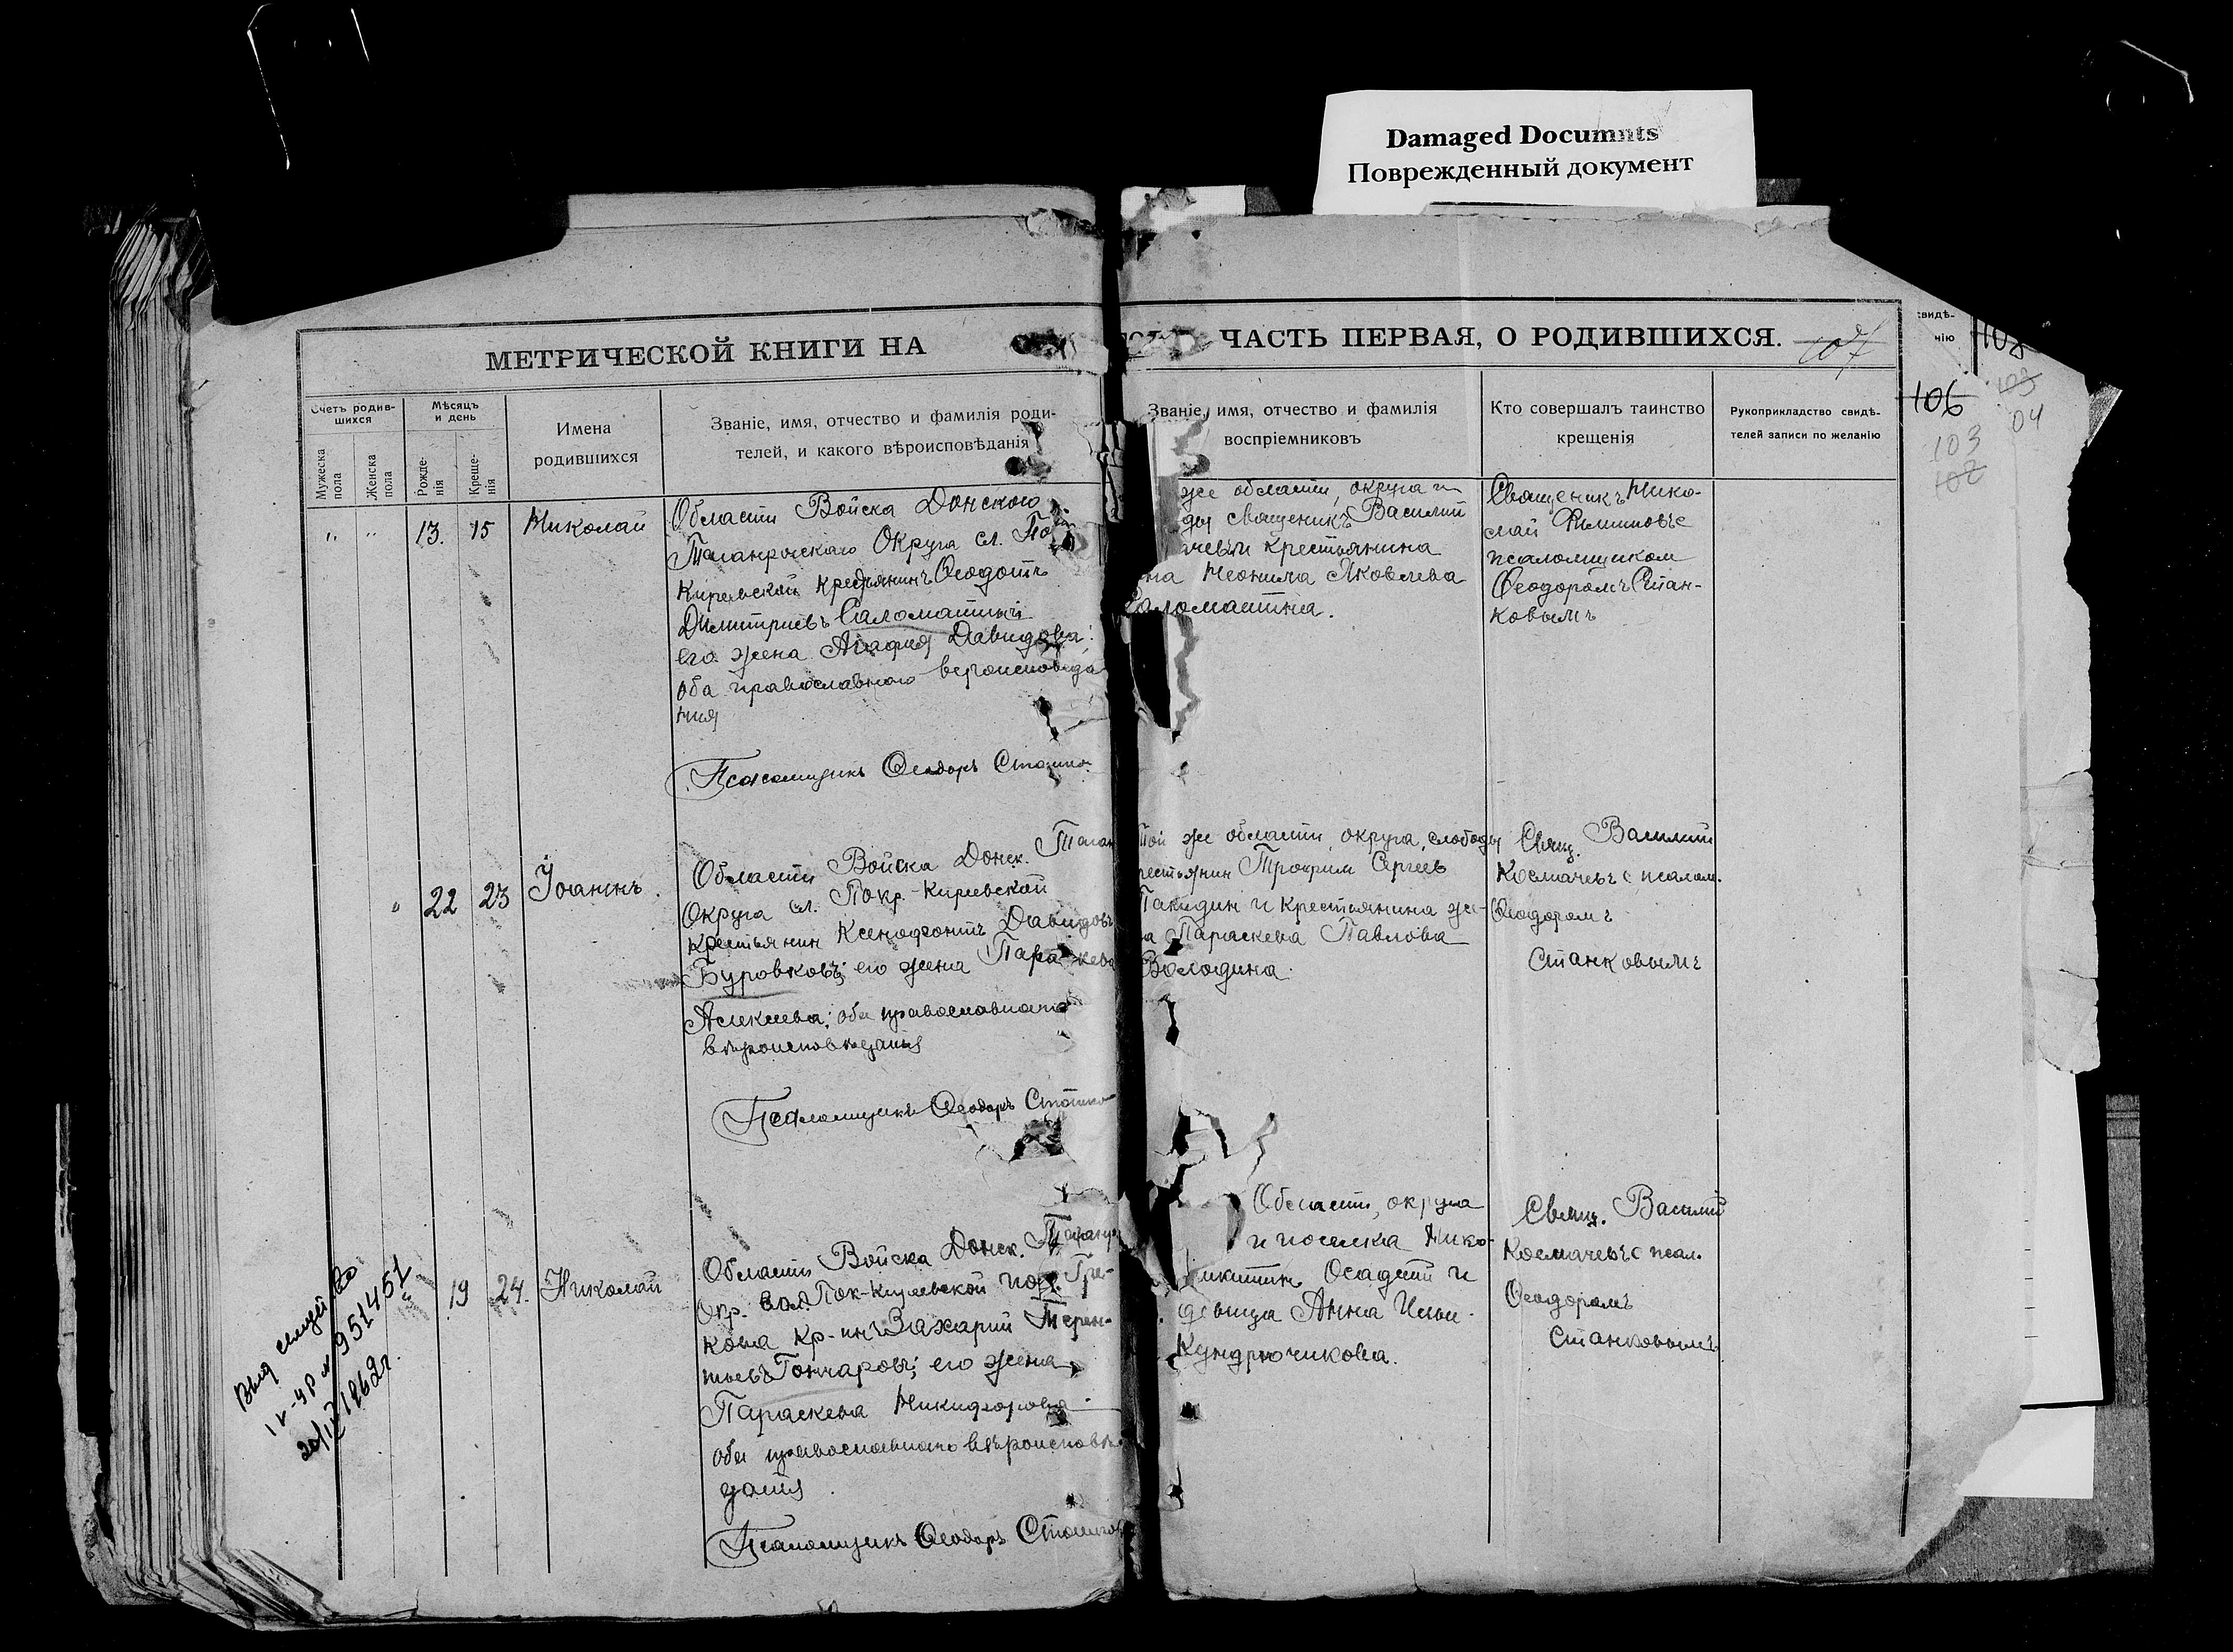 Damaged Documnts
Поврежденный документ
МЕТРИЧЕСКОЙ КНИГИ НА
ЧАСТЬ ПЕРВАЯ, О РОДИВШИХСЯ.
107
свидѣ-
нію
106
103
04
103
102
Счетъ родив-
шихся
Мѣсяцъ
и день
Мужеска
пола
Женска
пола
Рожде-
нія
Креще-
нія
Имена
родившихся
Званіе, имя, отчество и фамилія роди-
телей, и какого вѣроисповѣданія
Званіе, имя, отчество и фамилія
воспріемниковъ
Кто совершалъ таинство
крещенія
Рукоприкладство свидѣ-
телей записи по желанію
" " 13. 15 Николай
Области Войска Донского
Таганрогскаго Округа сл. По
Киреевской крестьянинъ Ѳеодотъ
Димитріевъ Саломатинъ
его жена Агафія Давидова:
оба православнаго вероисповеда
ния
Псаломщикъ Ѳеодоръ Станко
же области, округа и
ды священикъ Василий
крестьянина
на Неонила Яковлева
Саломатина.
Священикъ Нико-
лай Филиповъ с
псаломщиком
Ѳеодоромъ Стан-
ковымъ
" 22 23 Іоаннъ.
Области Войска Донск. Таган
Округа сл. Покр.-Киреевской
крестьянин Ксенофонтъ Давидовъ
Буровковъ; его жена Параскева
Алексиева; оба православнаго
вѣроисповѣданія
Псаломщикъ Ѳеодоръ Станко
Той же области, округа, слободы
рестьянин Трофим Сергеев
и крестьянина же-
на Параскева Павлова
Володина.
Свящ. Василий
Космачевъ с псалом.
Ѳеодоромъ
Станковымъ
19 24. Николай
Области Войска Донск. Таганр
Окр. вол. Пок-Киреевской пос. Гре-
кова кр-инъ Захарий Терен-
тьевъ Гончаровъ; его жена
Параскева Никифорова
оба православнаго вѣроисповѣ
данія
Псаломщикъ Ѳеодоръ Станков
Области, округа
и поселка Нико-
Осадчий и
девица Анна Ильи.
Кундрючикова.
Свящ. Василий
Космачевъ с псал.
Ѳеодоромъ
Станковымъ
Выд свид-во
№ 951451
1962г.